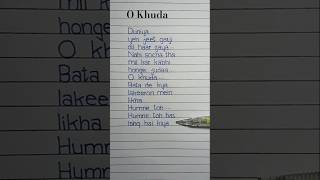 O Khuda
Duniya
yeh jeet gayi
dil haar gaya
Nahi socha tha
mil kar kabhi
honge judaa
O khuda
Bata de kya
lakeeron mein
likha
Humne toh
Humne toh bas
ishq hai kiya